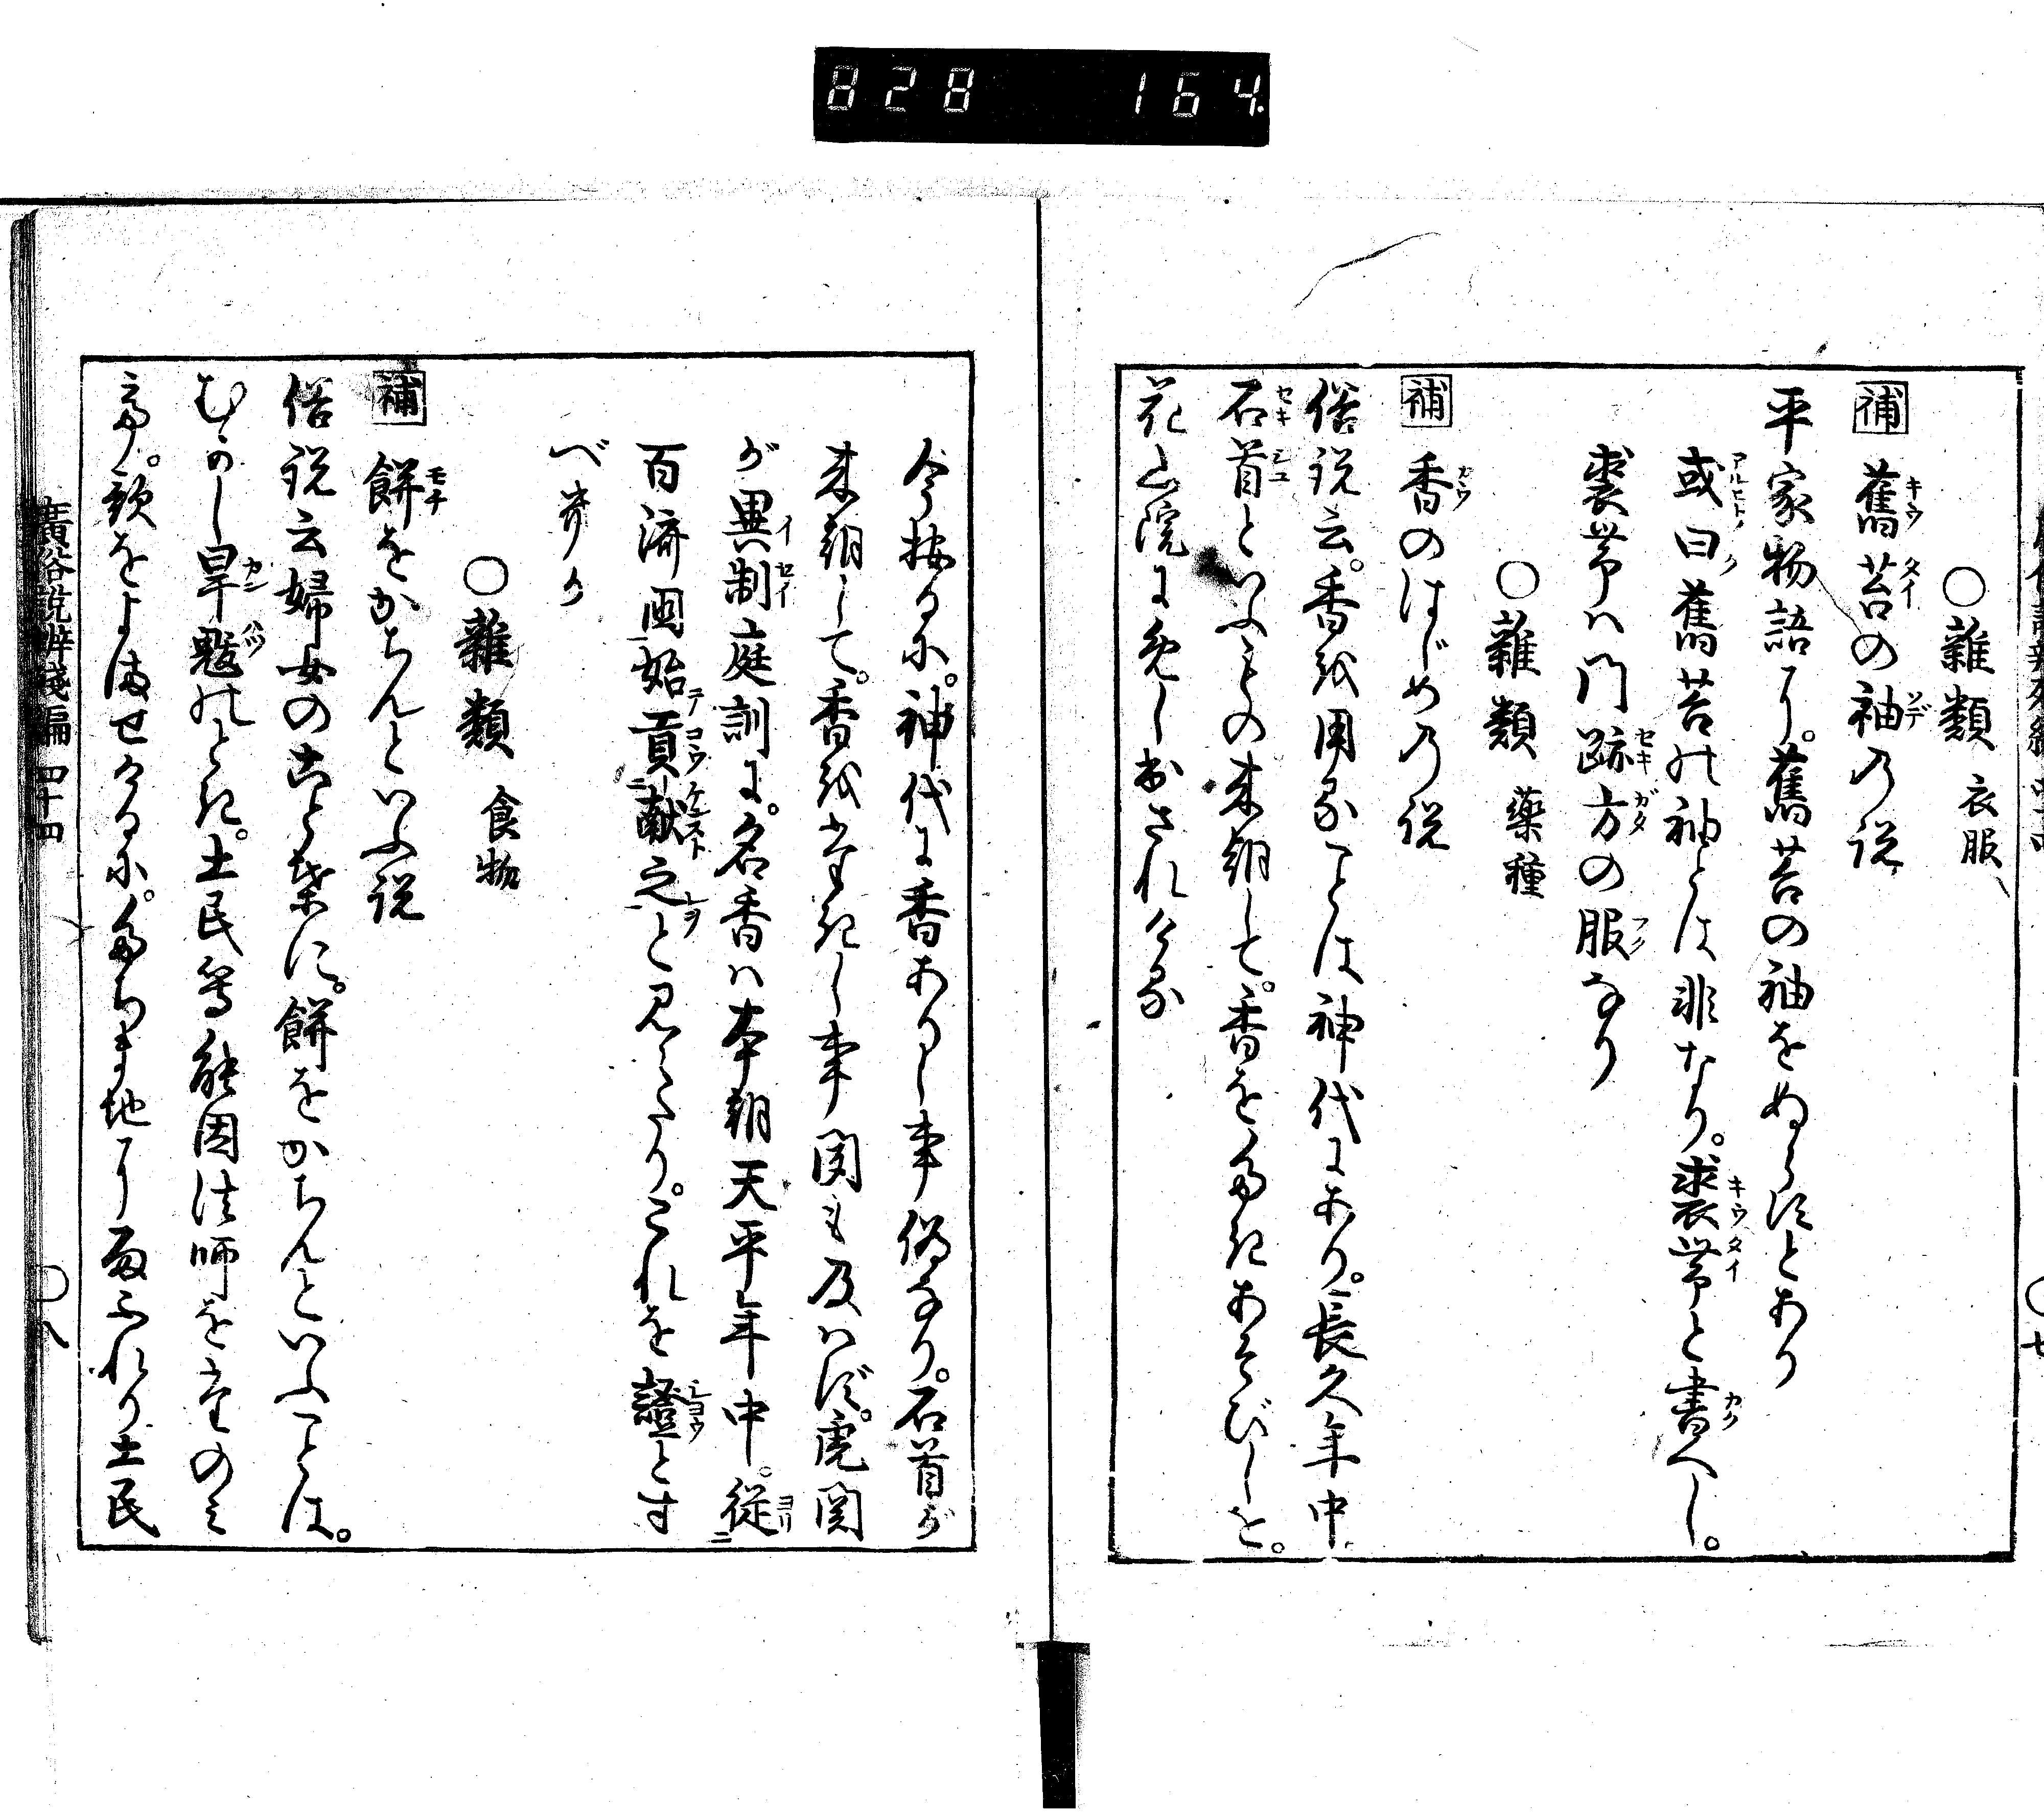 828 164
○雜類 衣服
補 舊苔の袖乃説
平家物語に。舊苔の袖をぬらすとあり
或曰舊苔の袖とは非なり。裘帯と書へし。
裘帯ハ門跡方の服なり
○雜類 藥種
補 香のはじめ乃説
俗説云。香を用ることは神代にあり。長久年中
石首といふもの来朝して。香をたきあそびしを。
花山院に免し出され
今按るに。神代に香ありし事偽なり。石首が
来朝して。香をたきし事聞も及ハず。虎関
が異制庭訓に。名香ハ本朝天平年中。従
百済國始貢献之と見えたり。これを證とす
べき
○雜類 食物
補 餅をかちんといふ説
俗説云婦女のことばに。餅をかちんといふことは。
むかし旱魃のとき。土民等能因法師をたのみ
歌をよませけるに。たちまち地に雨ふれり土民
廣俗説辨殘編 四十四 ○八